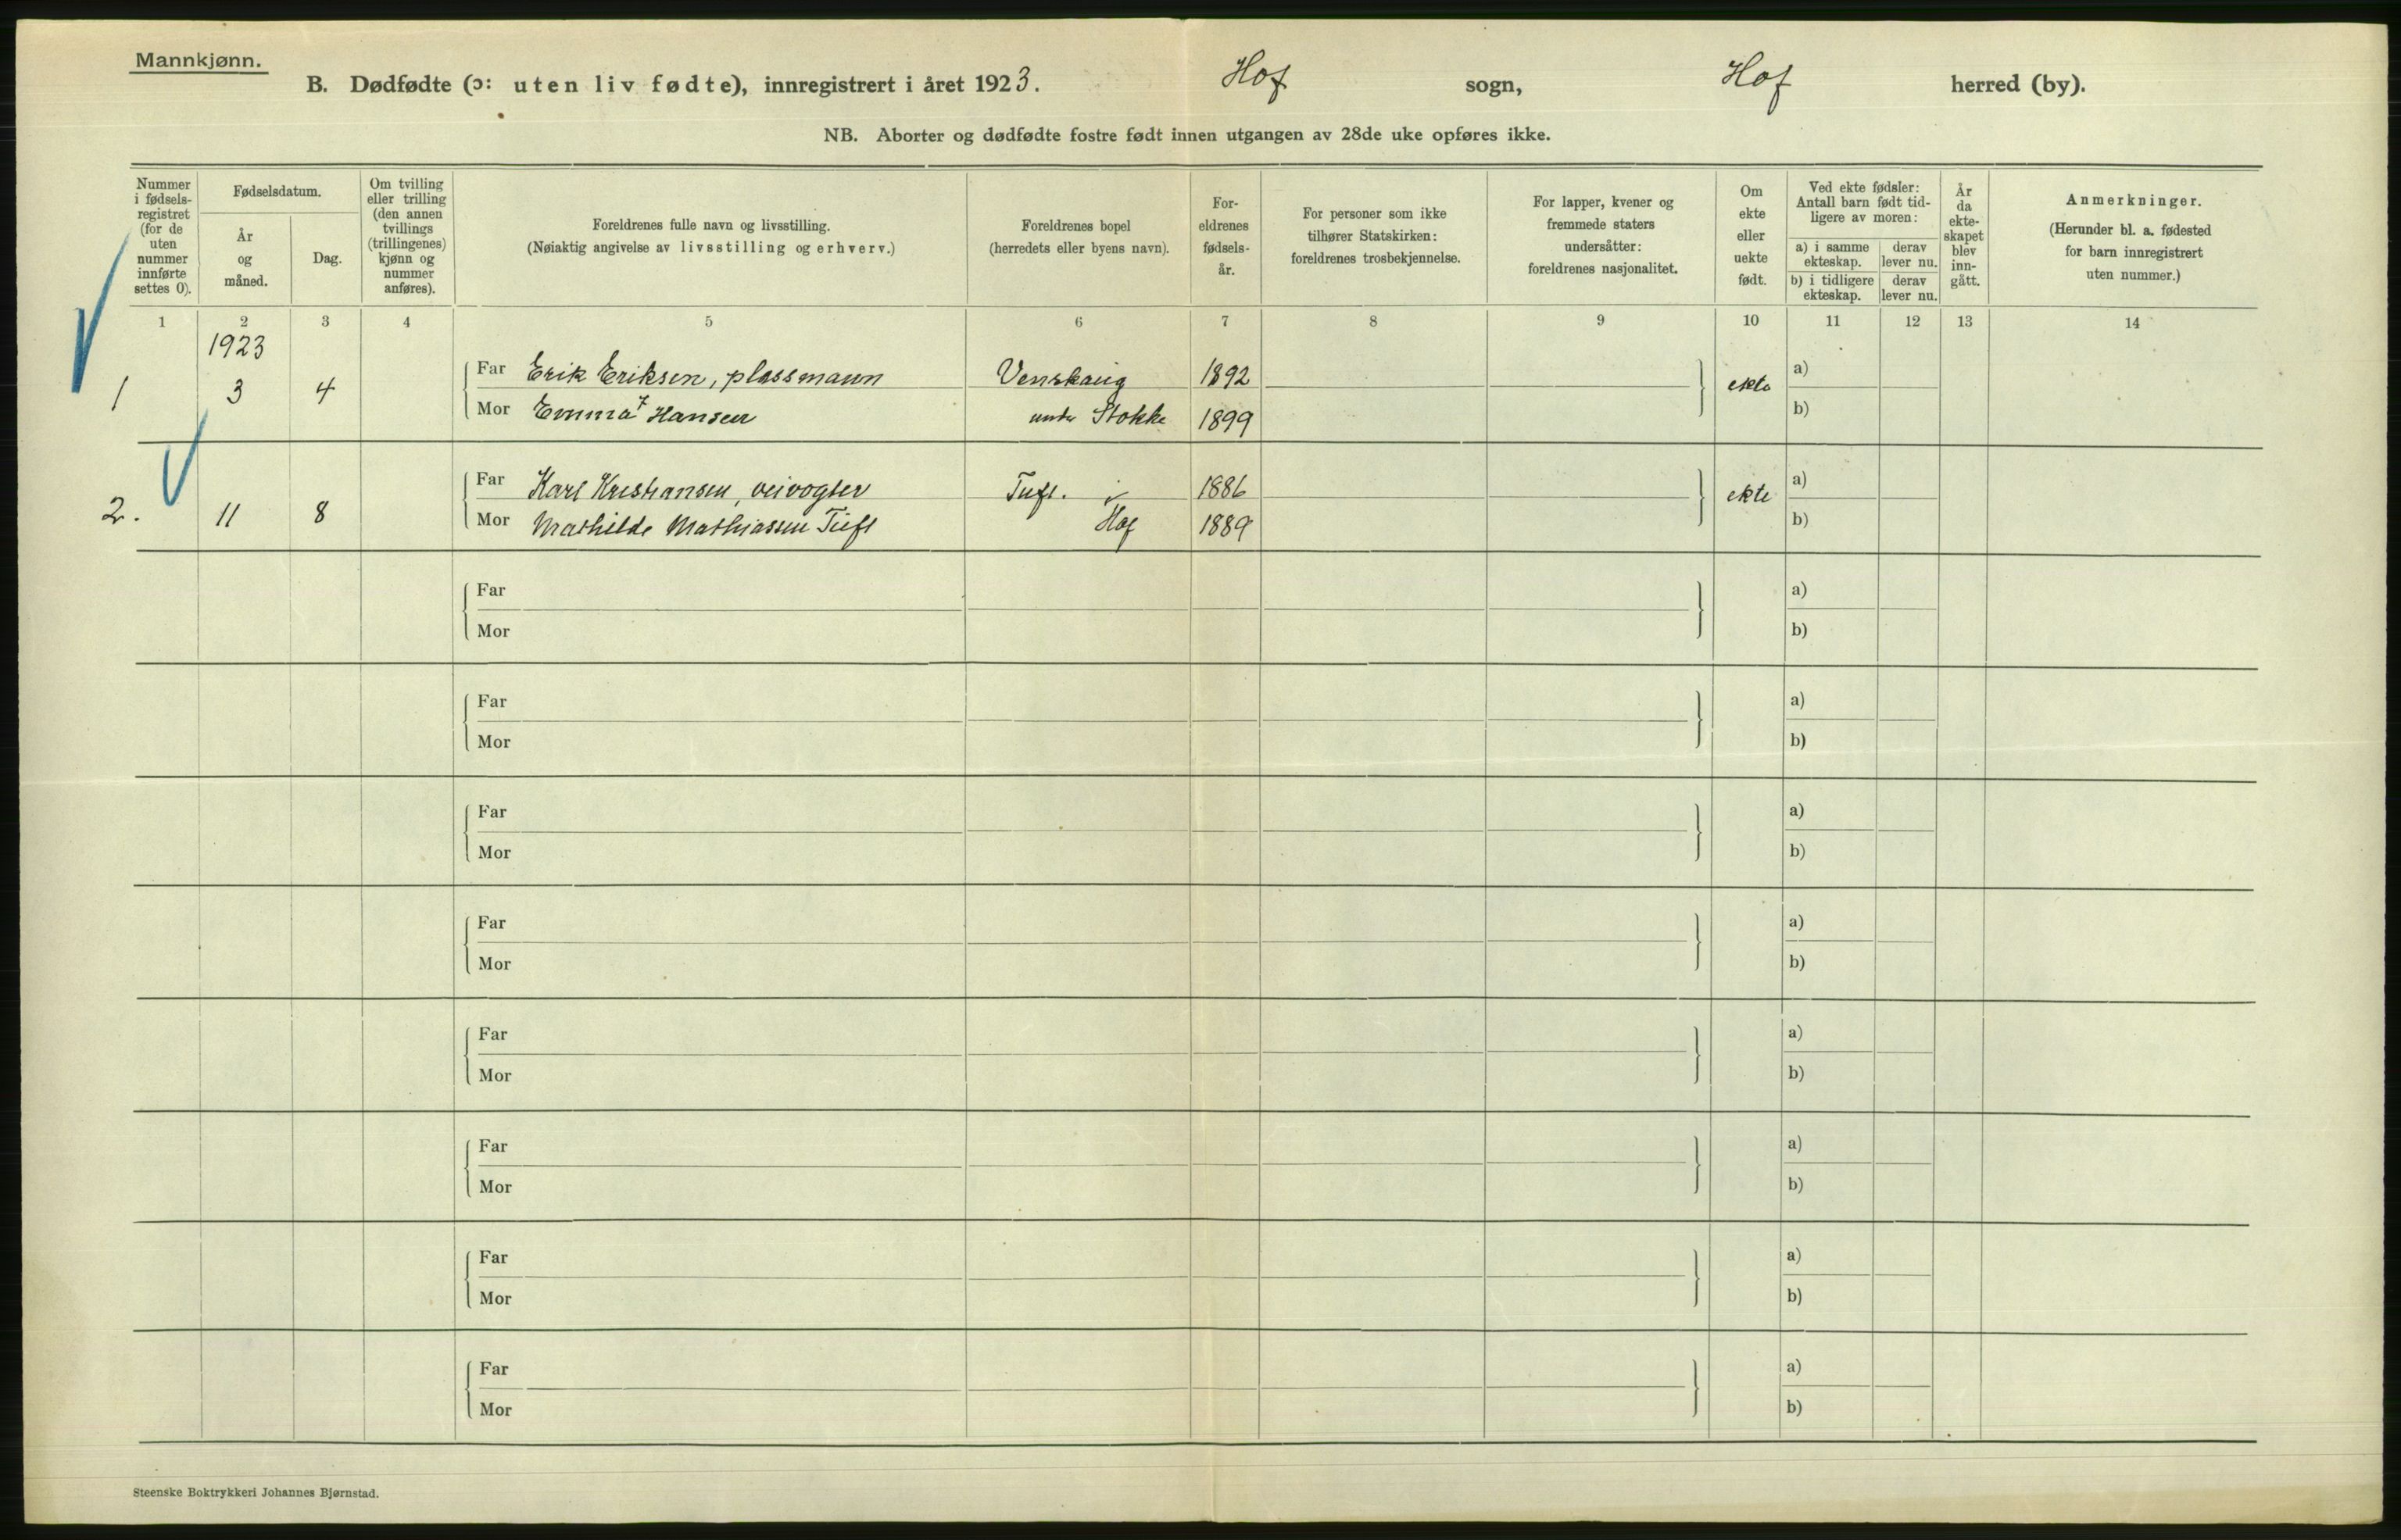 Mannkjønn.
B. Dødfødte (ɔ: uten liv fødte), innregistrert i året 1923. Hof sogn, Hof herred (by).
NB. Aborter og dødfødte fostre født innen utgangen av 28de uke opføres ikke.
Nummer i fødsels-registret (for de uten nummer innførte settes 0).
Fødselsdatum.
År og måned.
Dag.
Om tvilling eller trilling (den annen tvillings (trillingenes) kjønn og nummer anføres).
Foreldrenes fulle navn og livsstilling.
(Nøiaktig angivelse av livsstilling og erhverv.)
Foreldrenes bopel
(herredets eller byens navn).
For-eldrenes fødsels-år.
For personer som ikke tilhører Statskirken: foreldrenes trosbekjennelse.
For lapper, kvener og fremmede staters undersåtter: foreldrenes nasjonalitet.
Om ekte eller uekte født.
Ved ekte fødsler: Antall barn født tid-ligere av moren:
a) i samme ekteskap.
derav lever nu.
b) i tidligere ekteskap.
derav lever nu.
År da ekte-skapet blev inn-gått.
Anmerkninger.
(Herunder bl. a. fødested for barn innregistrert uten nummer.)
1 2 3 4 5 6 7 8 9 10 11 12 13 14
1923
Far Erik Eriksen, plassmann Venskaug 1892 a)
1 3 4 ekte
Mor Emma Hansen under Stokke 1899 b)
Far Karl Kristiansen, veivogter Tuft. i 1886 a)
2. 11 8 ekte
Mor Mathilde Mathiassen Tuft Hof 1889 b)
Far a)
Mor b)
Far a)
Mor b)
Far a)
Mor b)
Far a)
Mor b)
Far a)
Mor b)
Far a)
Mor b)
Far a)
Mor b)
Far a)
Mor b)
Steenske Boktrykkeri Johannes Bjørnstad.